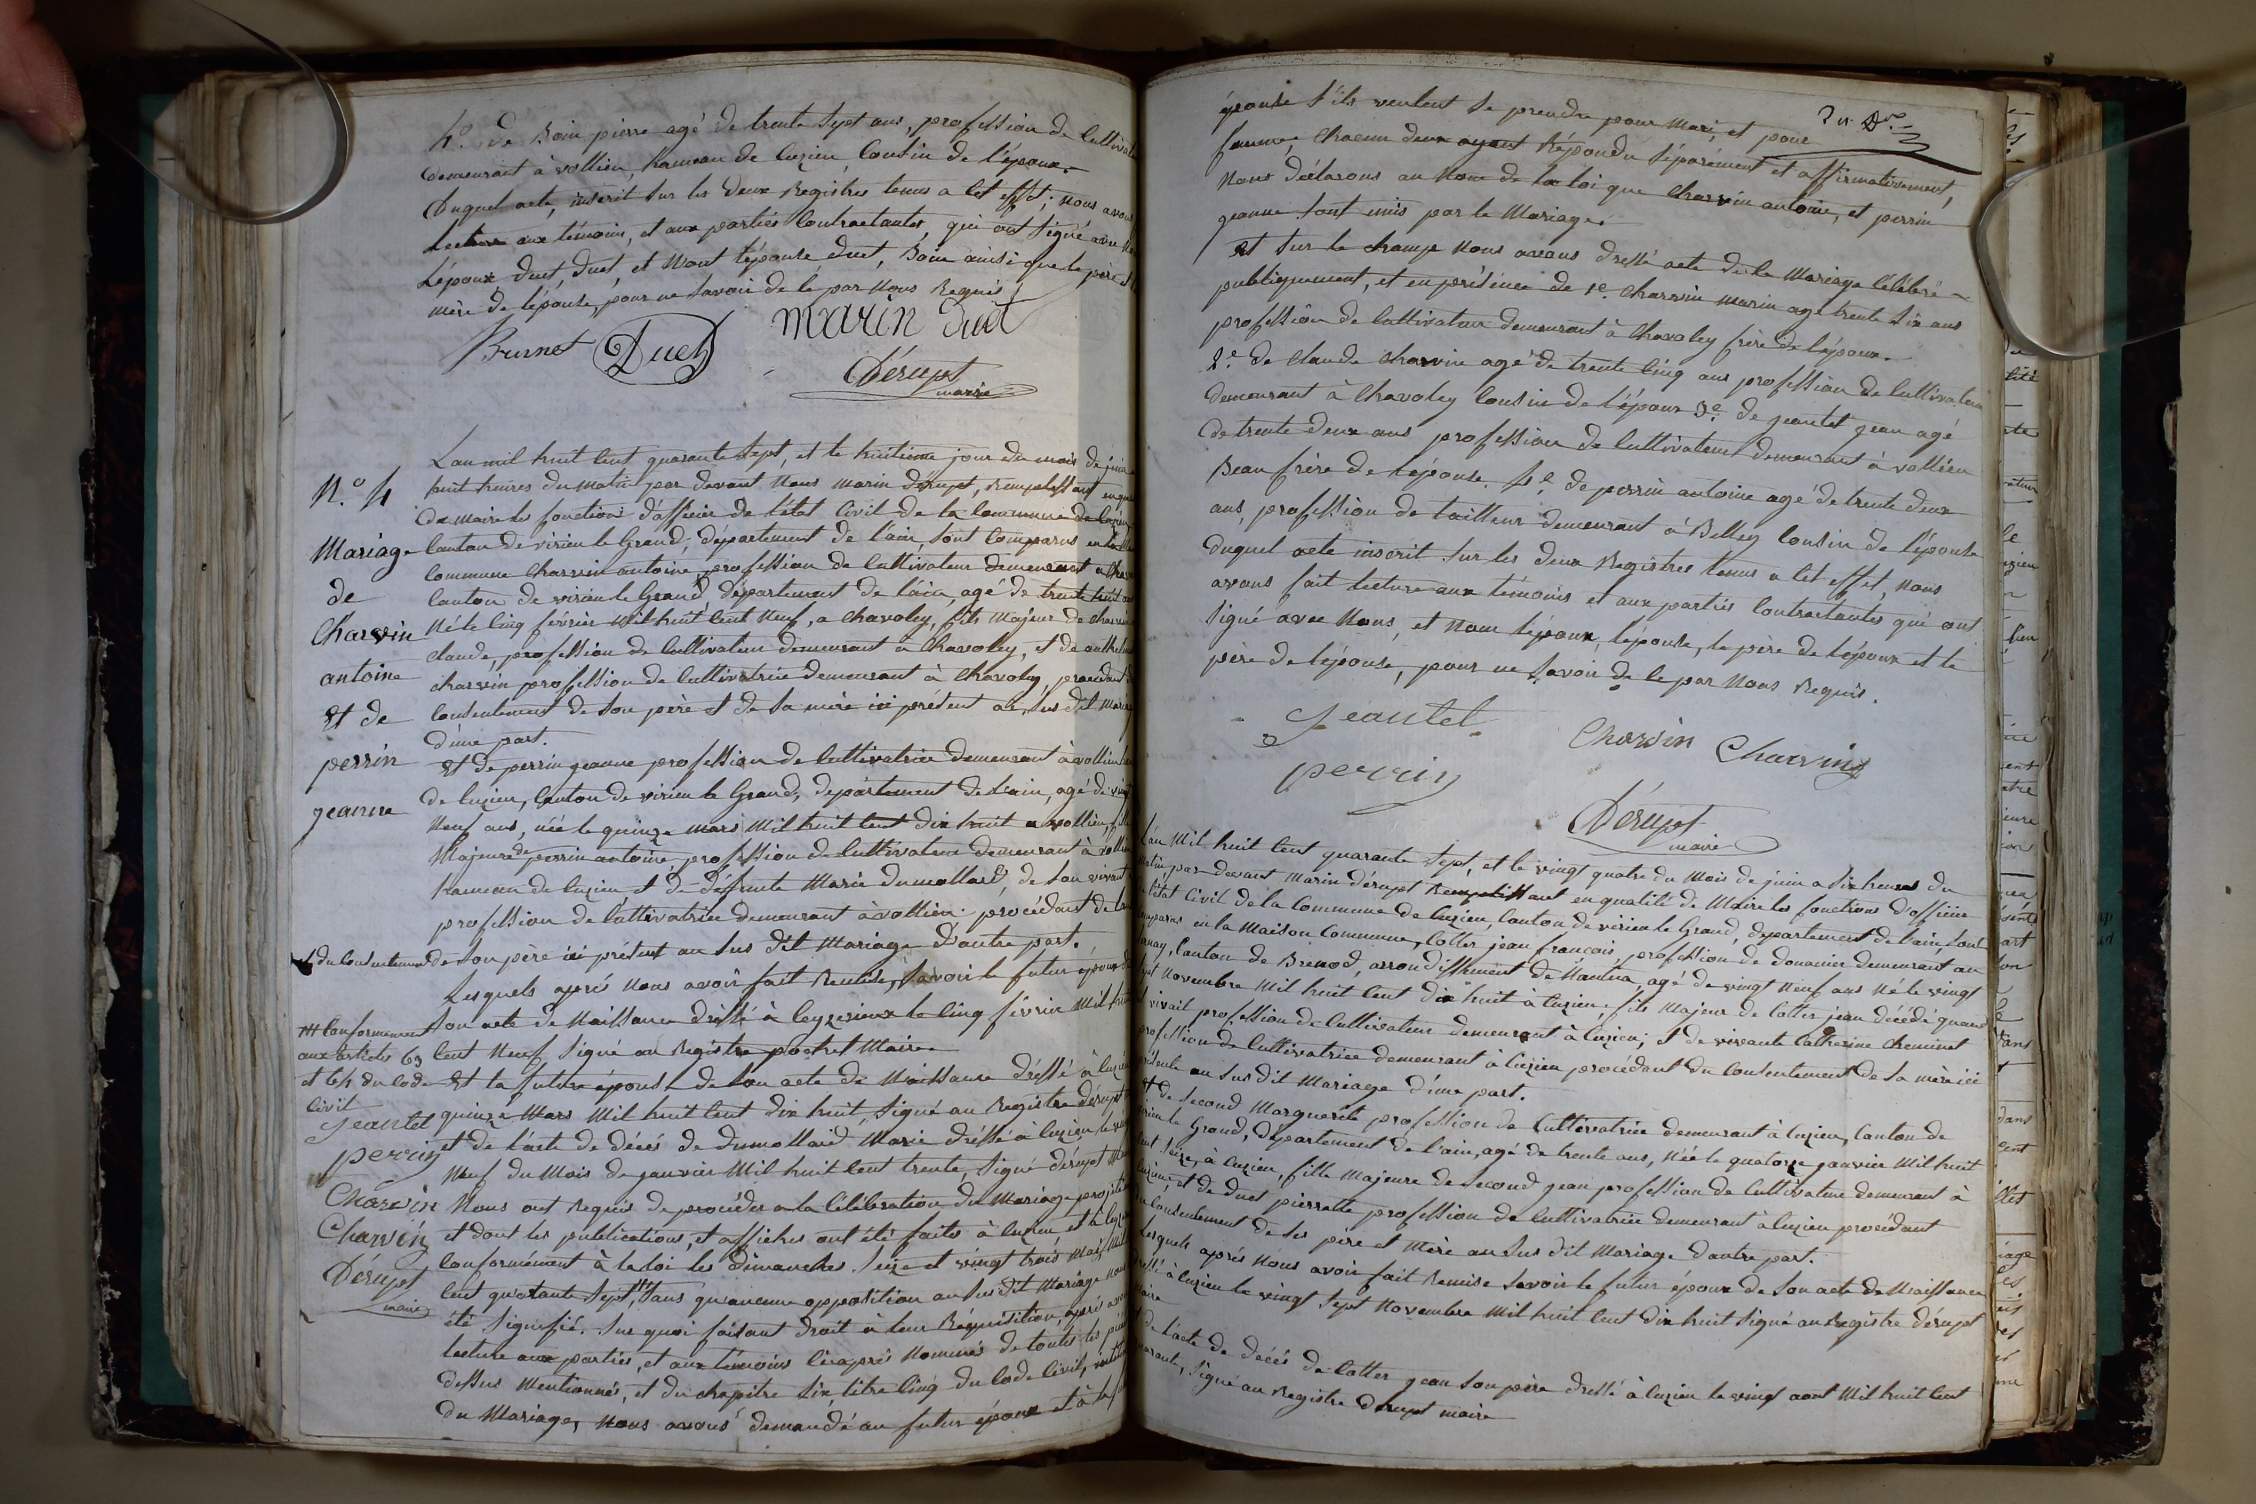 4.º de Boin pierre agé de trente sept ans, profession de
demeurant à vollien, hameau de Cuzieu, Cousin de l'époux.
Duquel acte, inscrit sur les deux Registres tenus a cet effet; nous avons
lecture aux témoins, et aux parties Contractantes, qui ont signé avec
l'époux duet, duet, et Nont l'épouse duet, Boin ainsi que le père et
mère de l'épouse, pour ne savoir de ce par nous Requis
Brunet Duet marin duet
Dérupt
maire
N.º 4
Mariage
de
Charvin
antoine
Et de
perrin
jeanne
L'an mil huit cent quarante sept, et le huitième jour du mois de juin
huit heures du matin par devant Nous marin dérupt, remplissant en
de maire les fonctions d'officier de l'état Civil de la Commune de Cuzieu
Canton de virieu le Grand, département de l'ain, sont Comparus en la
Commune Charvin antoine profession de Cultivateur demeurant a
Canton de virieu le Grand département de l'ain, agé de trente huit ans
Né le cinq février mil huit cent Neuf, a chavoley, fils Majeur de charvin
claude, profession de Cultivateur demeurant a Chavoley, et de
charvin profession de Cultivatrice demeurant à Chavoley, procédant
Consentement de son père et de sa mère ici présent au sus dit mariage
d'une part.
Et de perrin jeanne profession de Cultivatrice demeurant à vollien
de Cuzieu, Canton de virieu le Grand, département de l'ain, agé de vingt
Neuf ans, née le quinze mars mil huit cent dix huit a vollien, fille
Majeure de perrin antoine, profession de Cultivateur demeurant à vollien
hameau de Cuzieu et de défunte Marie dumollard, de son vivant
profession de Cultivatrice demeurant à vollien. procédant
et du consentement de son père ici présent au sus dit Mariage D'autre part.
Lesquels après nous avoir fait Remise, savoir le futur époux de
son acte de Naissance dréssé à Ceyzerieux le cinq février Mil huit
cent Neuf, signé au Registre pochet Maire
Et la future épouse de son acte de Naissance dréssé à Cuzieu
quinze Mars mil huit cent dix huit, signé au Registre dérupt
et de l'acte de décés de dumollard Marie dréssé à Cuzieu le
Neuf du Mois de janvier Mil huit cent trente, signé dérupt
Nous ont requis de procéder a la Célébration du Mariage projeté
et dont les publications, et affiches ont été faites à Cuzieu, et à
Conformément à la loi les dimanches seize et vingt trois mai mil
cent quarante sept, sans qu'aucune opposition au sus dit Mariage nous
été signifié. Sur quoi faisant droit à leur Réquisition, après avoir
lecture aux parties, et aux témoins ci après nommés de toutes les pièces
dessus Mentionnés, et du chapitre six, titre cinq du Code Civil, intitulé
du Mariage, nous avons demandé au futur époux et à la
Conformément
aux articles 63
et 64 du Code
Civil
Jeantet
perrin
Charvin
Charvin
Dérupt
maire
épouse s'ils veulent se prendre pour mari, et pour
femme, chacun deux ayant Répondu séparément et affirmativement,
Nous déclarons au Nom de la loi que charvin antoine, et perrin
jeanne sont unis par le Mariage.
Et sur le champ nous avons dréssé acte de ce Mariage Célébré
publiquement, et en présence de 1.º charvin marin agé trente six ans
profession de Cultivateur demeurant à Chavoley frère de l'époux.
2.º de Claude Charvin agé de trente cinq ans profession de Cultivateur
demeurant à Chavoley Cousin de l'époux 3.º de jeantet jean agé
de trente deux ans profession de Cultivateur demeurant à vollien
Beau frère de l'épouse. 4.º de perrin antoine agé de trente deux
ans, profession de tailleur demeurant à Belley Cousin de l'épouse
Duquel acte inscrit sur les deux Registres tenus a cet effet, nous
avons fait lecture aux témoins et aux parties Contractantes qui ont
signé avec nous, et Nont l'époux, l'épouse, le père de l'époux et le
père de l'épouse, pour ne savoir de ce par nous Requis.
Jeantet
Charvin Charvin
perrin
Dérupt
maire
L'an Mil huit cent quarante sept, et le vingt quatre du Mois de juin a six heures du
matin, par devant Marin dérupt Remplissant en qualité de Maire les fonctions d'officier
l'état Civil de la Commune de Cuzieu, Canton de virieu le Grand, département de l'ain, sont
comparus en la Maison Commune, Cotter jean françois, profession de douanier demeurant au
Canton de Brenod, arrondissement de Nantua, agé de vingt Neuf ans Né le vingt
sept Novembre Mil huit cent dix huit à Cuzieu, fils Majeur de Cotter jean décédé quand
vivait profession de Cultivateur demeurant à Cuzieu; et de vivante Catherine Cheminet
profession de Cultivatrice demeurant à Cuzieu procédant du Consentement de sa mère ici
présente au sus dit Mariage d'une part.
Et de Second Marguerite profession de Cultivatrice demeurant à Cuzieu, Canton de
virieu le Grand, département de l'ain, agé de trente ans, Née le quatorze janvier Mil huit
cent seize, à Cuzieu, fille Majeure de second jean profession de Cultivateur demeurant à
Cuzieu, et de Duet pierrette profession de Cultivatrice demeurant à Cuzieu procédant
du Consentement de ses père et Mère au sus dit Mariage d'autre part.
Lesquels après nous avoir fait Remise savoir le futur époux de son acte de Naissance
dréssé à Cuzieu le vingt sept Novembre Mil huit cent dix huit signé au Registre dérupt
Maire
de l'acte de décés de Cotter jean son père dréssé à Cuzieu le vingt aout Mil huit cent
quarante, signé au Registre Dérupt maire